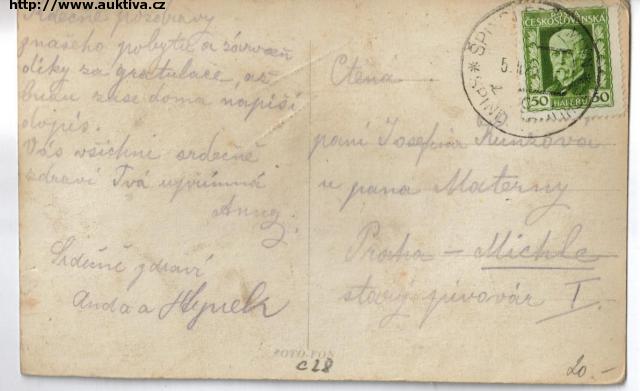 http://www.auktiva.cz
Srdečné pozdravy
z našeho pobytu a zároveň
díky za gratulace, až
budu zase doma, napíši
dopis.
Vás všichni srdečně
zdraví Tvá upřímná
Anny.
Srdečně zdraví
Anda a Hynek
POŠTA
ČESKOSLOVENSKÁ
50 HALÉŘŮ 50
ŠPIND
5.
Ctěná
paní Josefina
u pana Materny
Praha – Michle
starý pivovár I.
FOTO-FON
c28
20.-